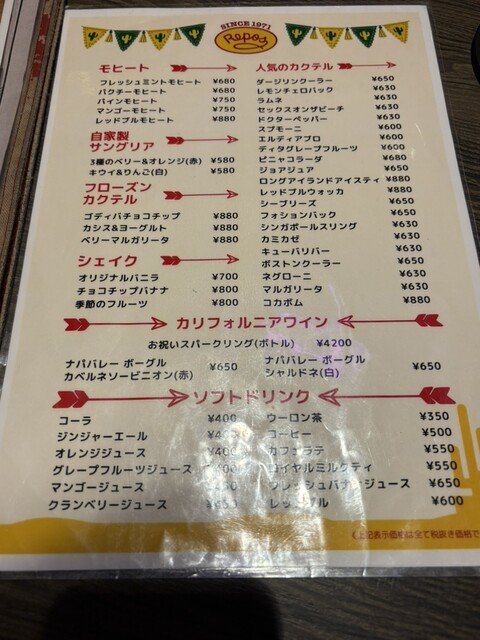 SINCE 1971
Repos
モヒート
フレッシュミントモヒート ¥680
パクチーモヒート ¥680
パインモヒート ¥750
マンゴーモヒート ¥750
レッドブルモヒート ¥880
自家製
サングリア
3種のベリー&オレンジ(赤) ¥580
キウイ&りんご(白) ¥580
フローズン
カクテル
ゴディバチョコチップ ¥880
カシス&ヨーグルト ¥880
ベリーマルガリータ ¥880
シェイク
オリジナルバニラ ¥700
チョコチップバナナ ¥800
季節のフルーツ ¥800
人気のカクテル
ダージリンクーラー ¥650
レモンチェロバック ¥630
ラムネ ¥630
セックスオンザビーチ ¥630
ドクターペッパー ¥630
スプモーニ ¥600
エルディアブロ ¥600
ディタグレープフルーツ ¥600
ピニャコラーダ ¥680
ジョアジュア ¥650
ロングアイランドアイスティ ¥880
レッドブルウォッカ ¥880
シーブリーズ ¥650
フォションバック ¥650
シンガポールスリング ¥630
カミカゼ ¥630
キューバリバー ¥630
ボストンクーラー ¥650
ネグローニ ¥630
マルガリータ ¥630
コカボム ¥880
カリフォルニアワイン
お祝いスパークリング(ボトル) ¥4200
ナパバレー ボーグル
カベルネソービニオン(赤) ¥650
ナパバレー ボーグル
シャルドネ(白) ¥650
ソフトドリンク
コーラ ¥400
ジンジャーエール
オレンジジュース ¥400
グレープフルーツジュース
マンゴージュース
クランベリージュース
ウーロン茶 ¥350
コーヒー ¥500
カフェラテ ¥550
ロイヤルミルクティ ¥550
フレッシュバナナジュース ¥650
レッドブル ¥600
(上記表示価格は全て税抜き価格で